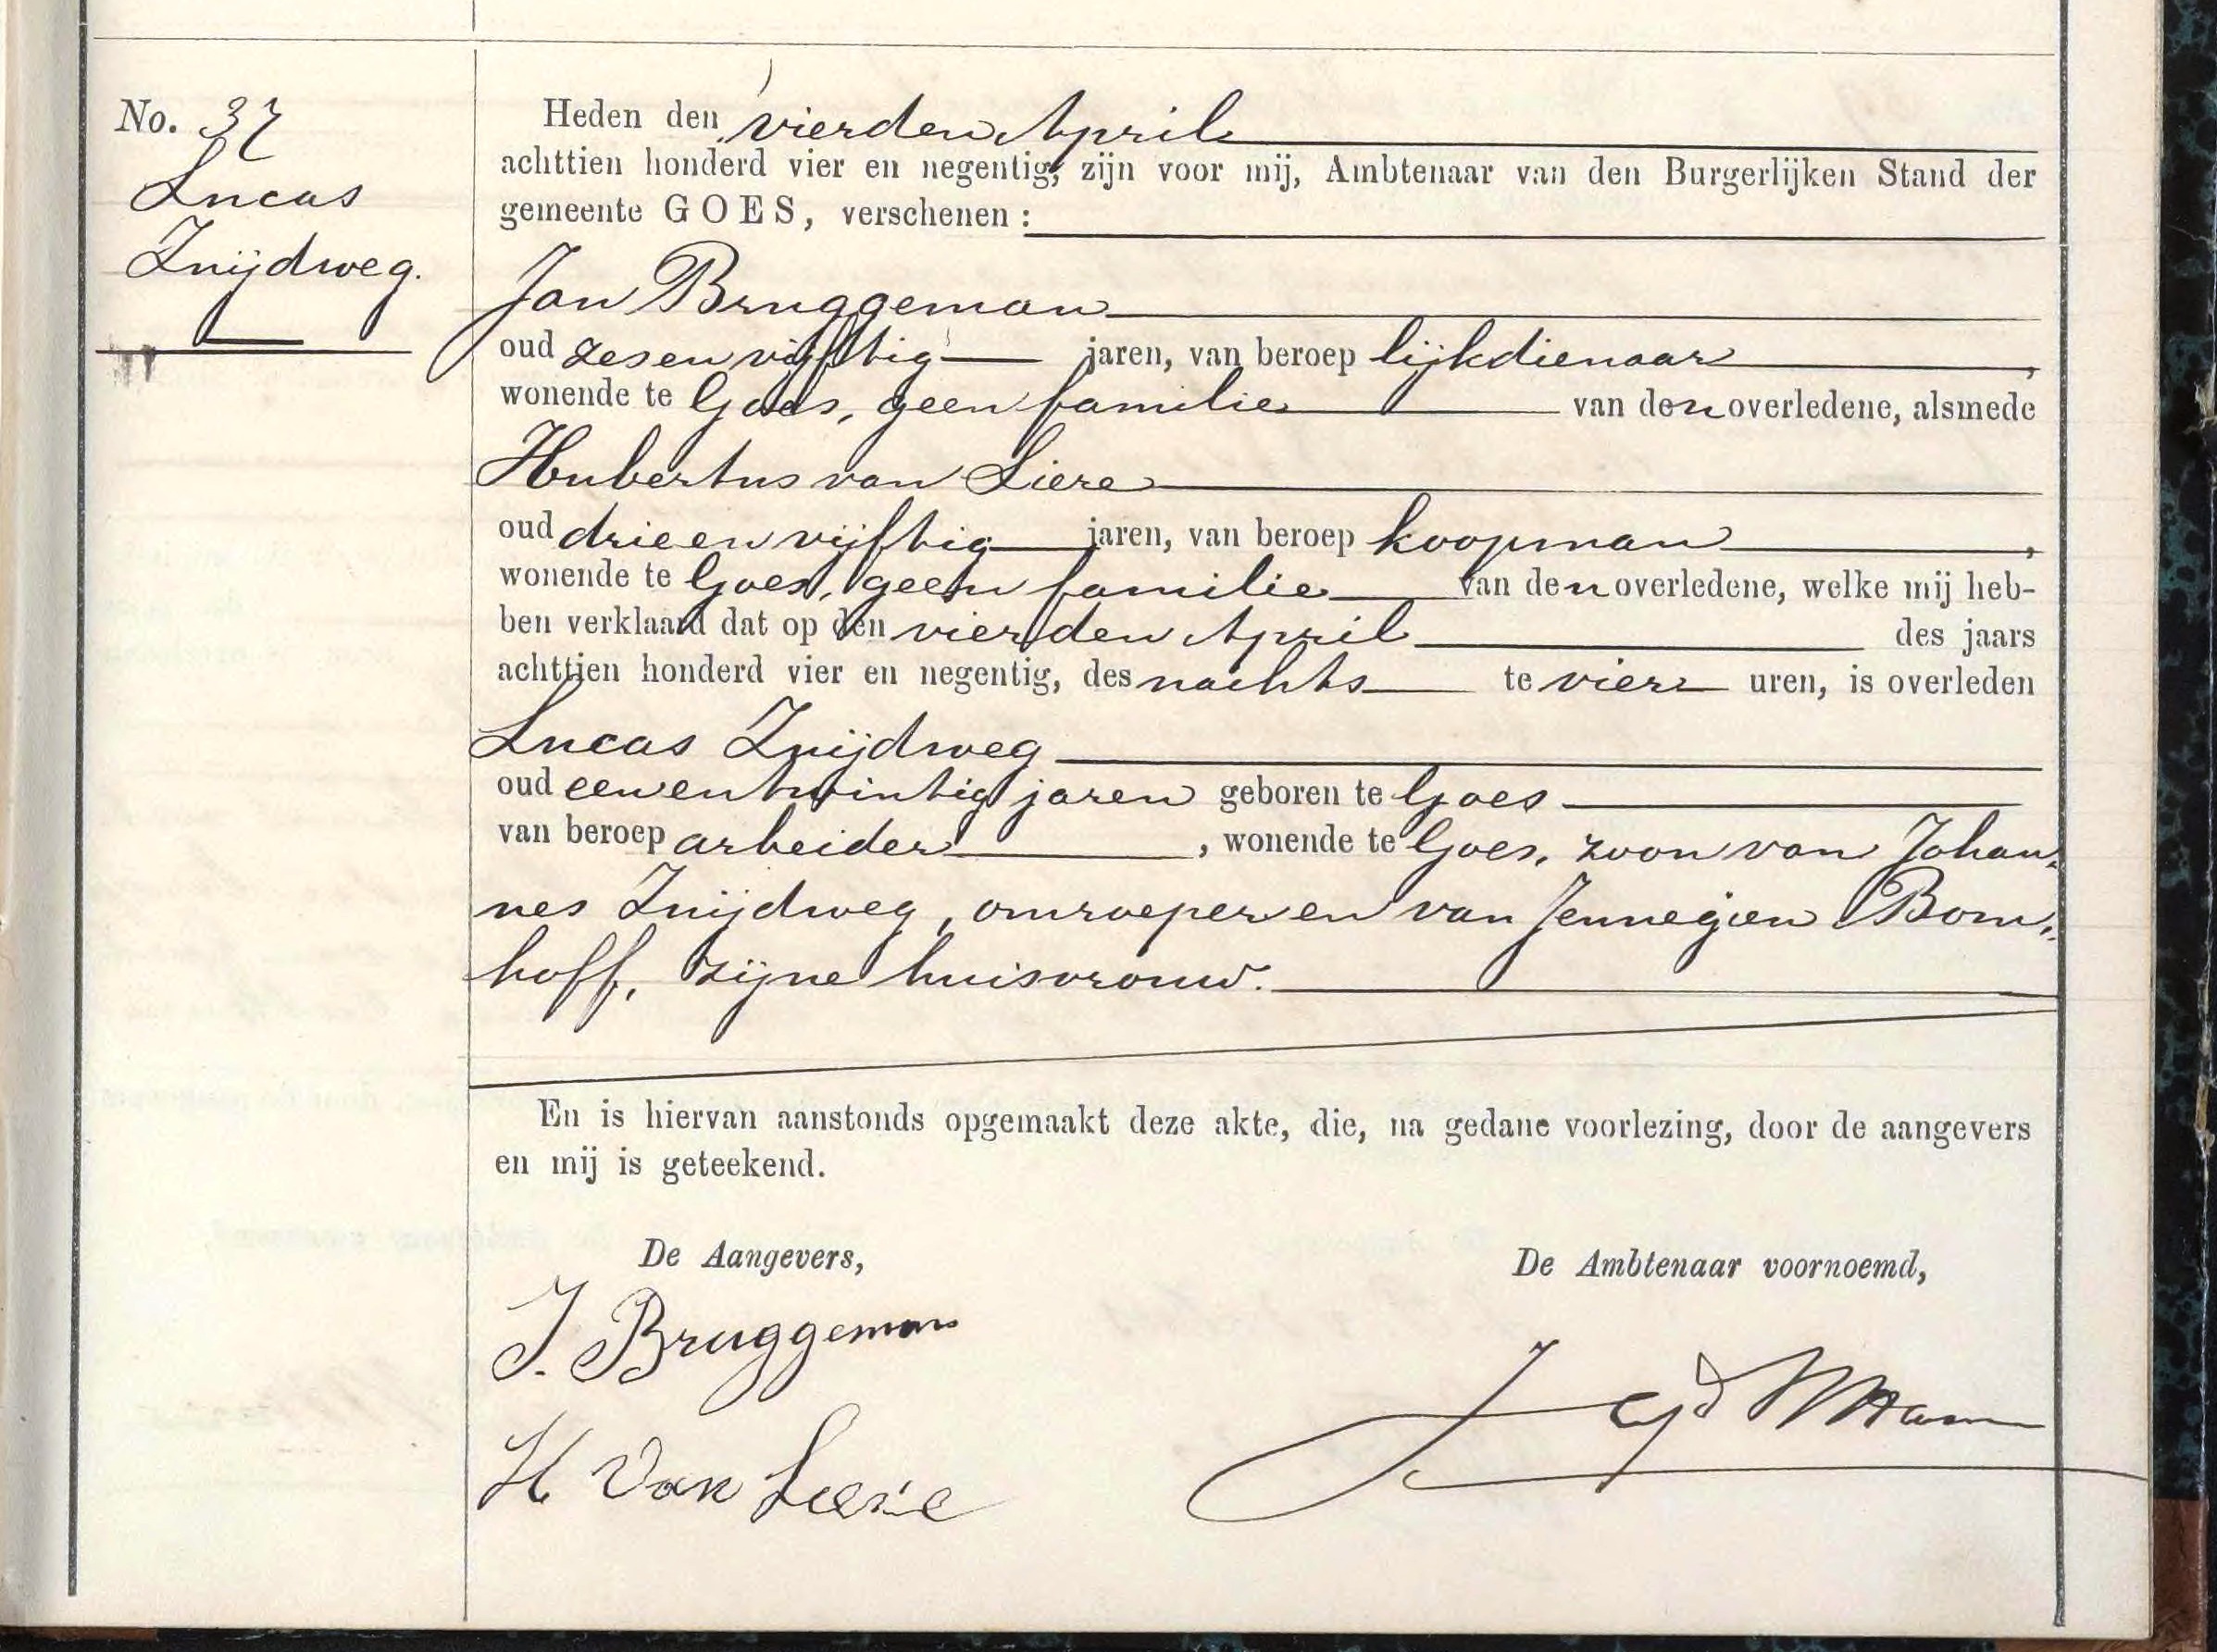 No. 37
Lucas
Zuijdweg.
Heden den vierden April
achttien honderd vier en negentig, zijn voor mij, Ambtenaar van den Burgerlijken Stand der
gemeente GOES, verschenen :
Jan Bruggeman
oud zesenvijftig jaren, van beroep lijkdienaar,
wonende te Goes, geen familie van den overledene, alsmede
Hubertus van Liere
oud drieenvijftig jaren, van beroep koopman,
wonende te Goes, geen familie van den overledene, welke mij heb-
ben verklaard dat op den vierden April des jaars
achttien honderd vier en negentig, des nachts te vier uren, is overleden
Lucas Zuijdweg
oud eenentwintig jaren geboren te Goes
van beroep arbeider, wonende te Goes, zoon van Johan-
nes Zuijdweg, omroeper en van Jennegien Bom-
hoff, zijne huisvrouw.
En is hiervan aanstonds opgemaakt deze akte, die, na gedane voorlezing, door de aangevers
en mij is geteekend.
De Aangevers,
De Ambtenaar voornoemd,
J. Bruggeman
H Van Liere